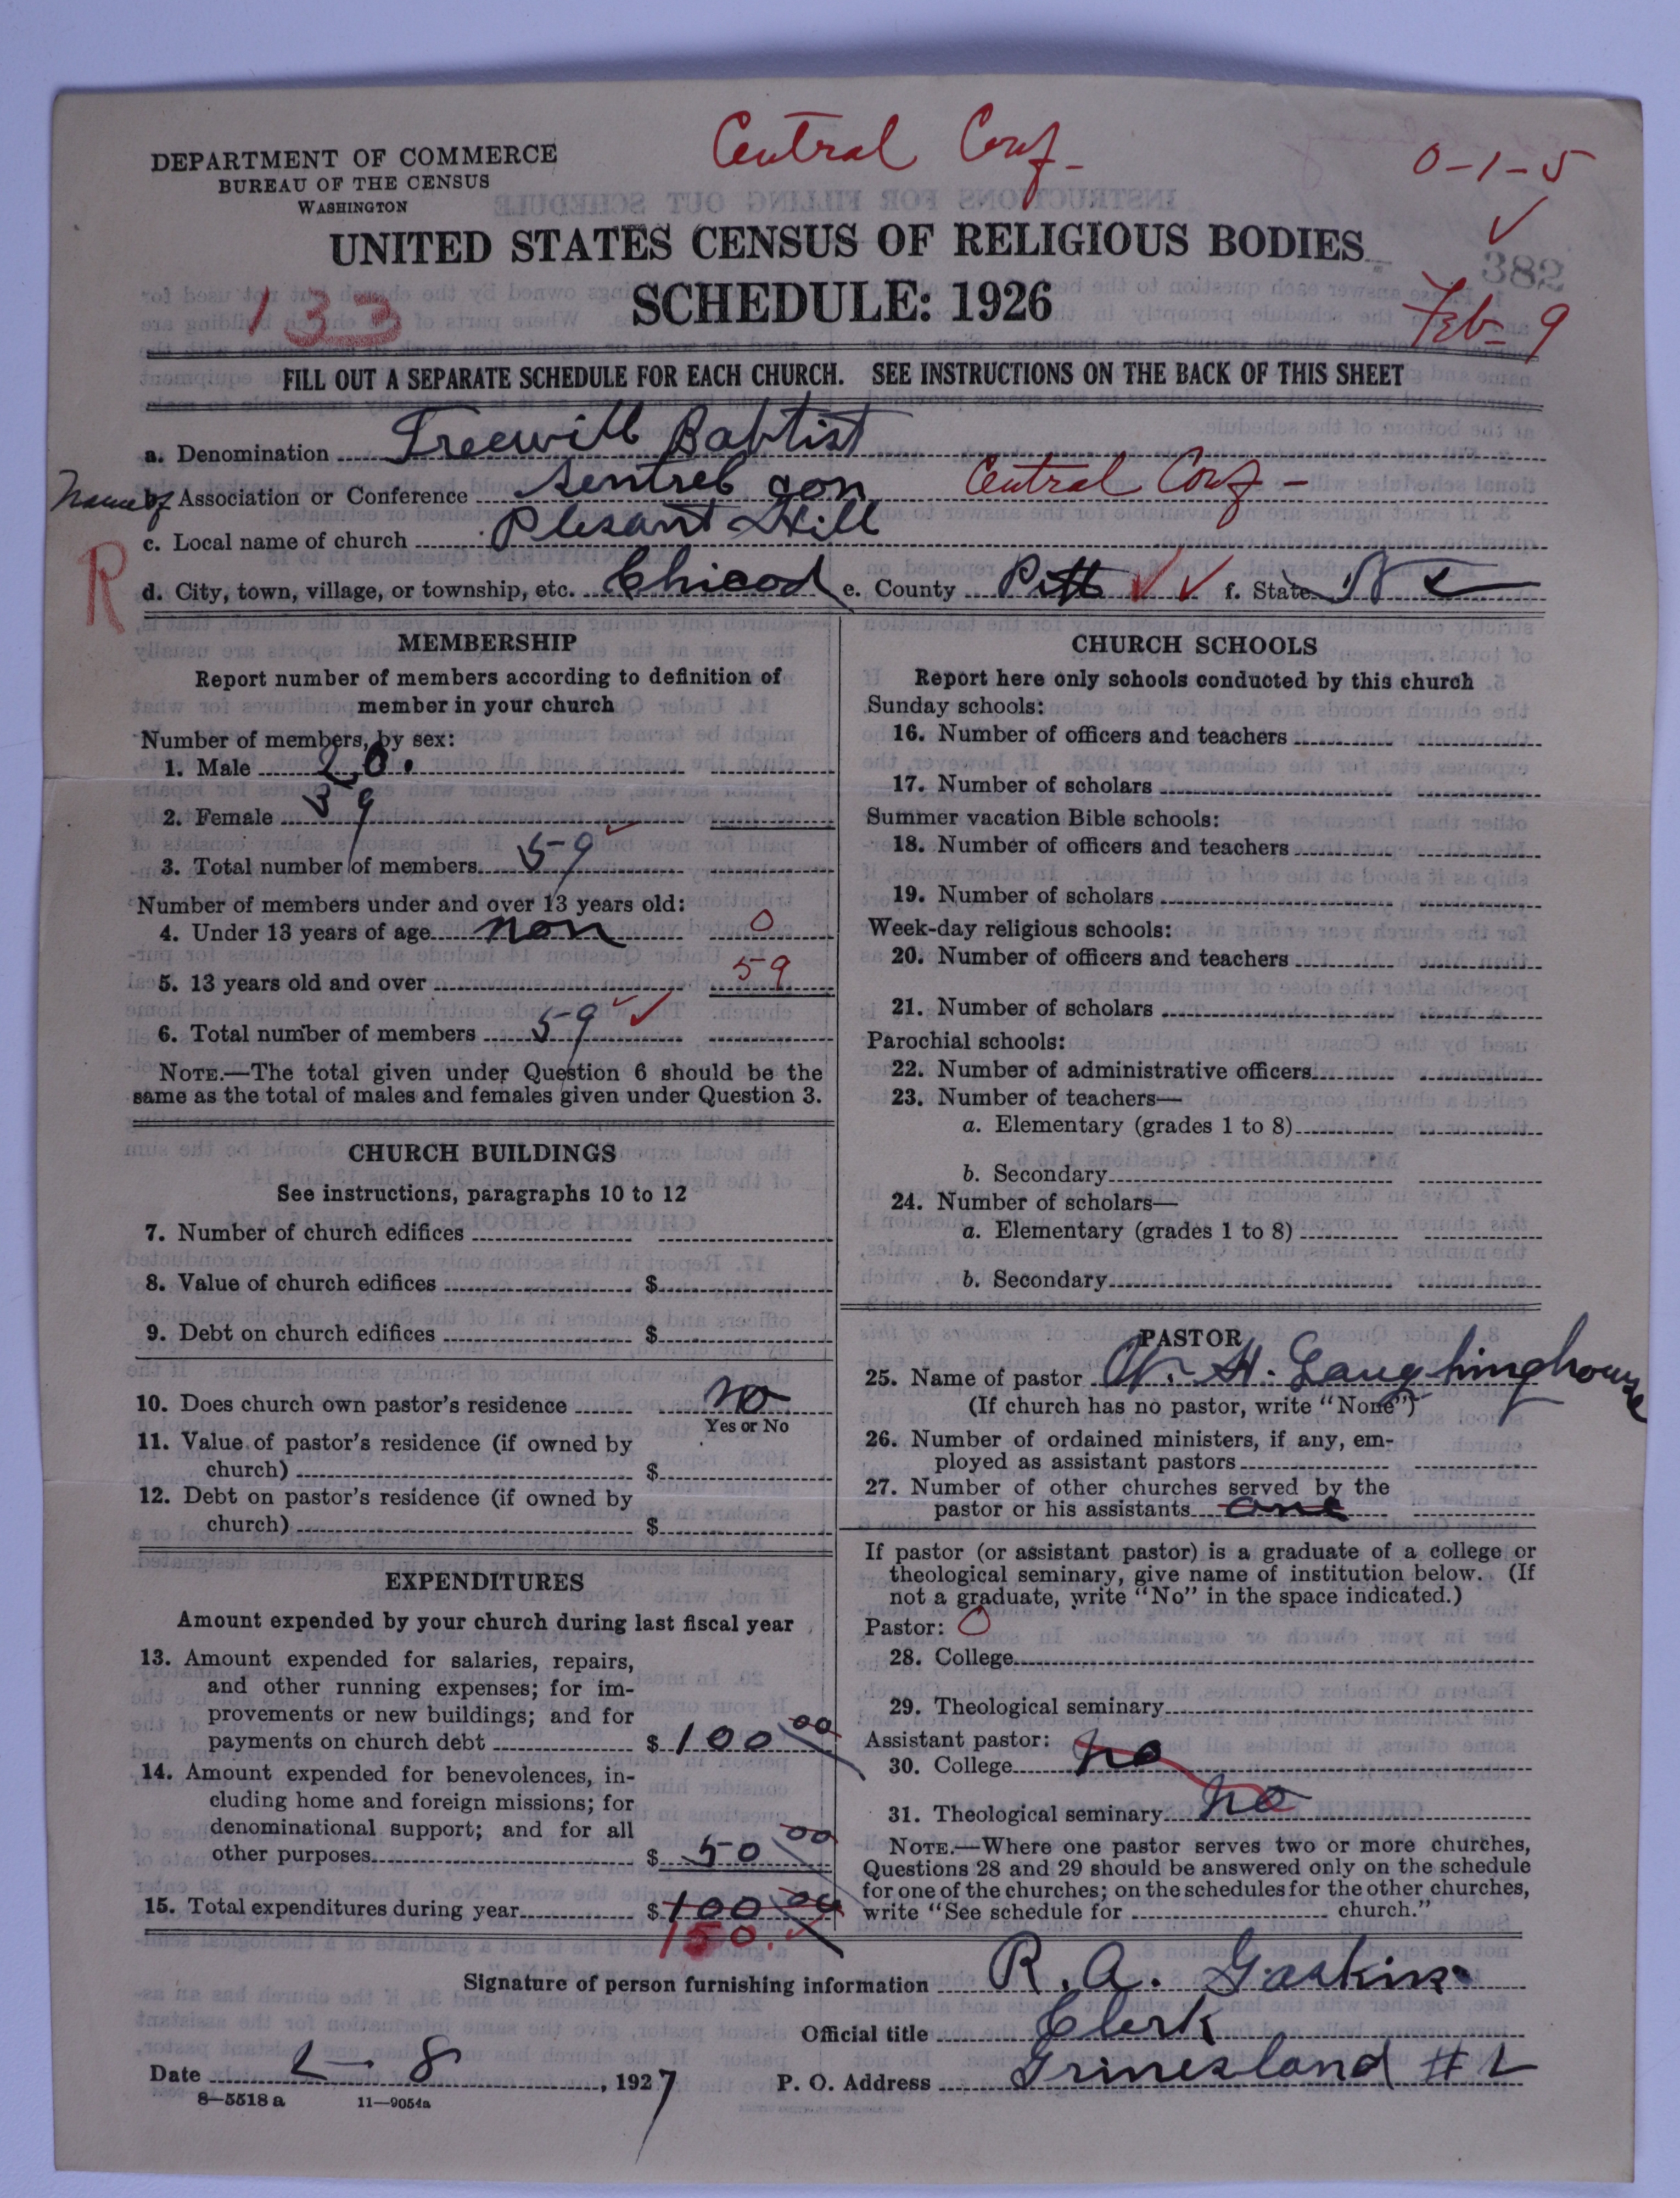 Central Conf-
0-1-5
DEPARTMENT OF COMMERCE
BUREAU OF THE CENSUS
WASHINGTON
UNITED STATES CENSUS OF RELIGIOUS BODIES
382
133
SCHEDULE: 1926
Feb- 9
FILL OUT A SEPARATE SCHEDULE FOR EACH CHURCH. SEE INSTRUCTIONS ON THE BACK OF THIS SHEET
a. Denomination Freewill Baptist
Name of b. Association or Conference Sentrel Con Central Conf-
c. Local name of church Plesant Hill
R
d. City, town, village, or township, etc. Chicod e. County Pitt f. State N C
MEMBERSHIP
Report number of members according to definition of
member in your church
Number of members, by sex:
1. Male 20.
2. Female 39
3. Total number of members 59
Number of members under and over 13 years old:
4. Under 13 years of age non 0
5. 13 years old and over 59
6. Total number of members 59
NOTE.—The total given under Question 6 should be the
same as the total of males and females given under Question 3.
CHURCH BUILDINGS
See instructions, paragraphs 10 to 12
7. Number of church edifices
8. Value of church edifices $
9. Debt on church edifices $
10. Does church own pastor's residence no
Yes or No
11. Value of pastor's residence (if owned by
church) $
12. Debt on pastor's residence (if owned by
church) $
EXPENDITURES
Amount expended by your church during last fiscal year
13. Amount expended for salaries, repairs,
and other running expenses; for im-
provements or new buildings; and for
payments on church debt $ 100 00
14. Amount expended for benevolences, in-
cluding home and foreign missions; for
denominational support; and for all
other purposes $ 50 00
15. Total expenditures during year $ 100 00
150.
CHURCH SCHOOLS
Report here only schools conducted by this church
Sunday schools:
16. Number of officers and teachers
17. Number of scholars
Summer vacation Bible schools:
18. Number of officers and teachers
19. Number of scholars
Week-day religious schools:
20. Number of officers and teachers
21. Number of scholars
Parochial schools:
22. Number of administrative officers
23. Number of teachers—
a. Elementary (grades 1 to 8)
b. Secondary
24. Number of scholars—
a. Elementary (grades 1 to 8)
b. Secondary
PASTOR
25. Name of pastor W. H. Laughinghouse
(If church has no pastor, write "None")
26. Number of ordained ministers, if any, em-
ployed as assistant pastors
27. Number of other churches served by the
pastor or his assistants one
If pastor (or assistant pastor) is a graduate of a college or
theological seminary, give name of institution below. (If
not a graduate, write "No" in the space indicated.)
Pastor: 0
28. College
29. Theological seminary
Assistant pastor:
30. College no
31. Theological seminary no
NOTE.—Where one pastor serves two or more churches,
Questions 28 and 29 should be answered only on the schedule
for one of the churches; on the schedules for the other churches,
write "See schedule for church."
Signature of person furnishing information R. A. Gaskins
Official title Clerk
Date 2-8, 1927 P. O. Address Grimesland # 2
8—5518 a 11—9054a